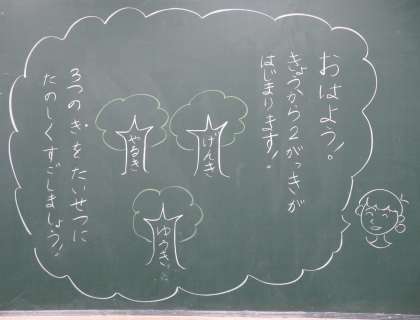 おはよう!
きょうから2がっきが
はじまります!
げんき
やるき
ゆうき
3つの"き"をたいせつに
たのしくすごしましょう!